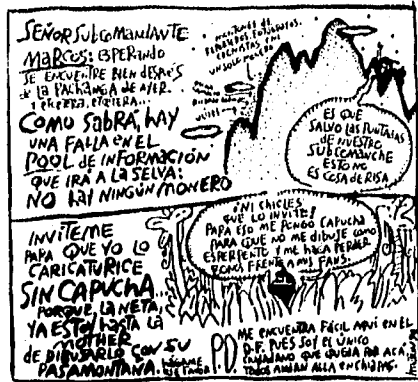 SEÑOR SUBCOMANDANTE
MARCOS: ESPERANDO
SE ENCUENTRE BIEN DESPUÉS
DE LA PACHANGA DE AYER
ETCÉTERA, ETCÉTERA...
COMO SABRÁ, HAY
UNA FALLA EN EL
POOL DE INFORMACIÓN
QUE IRÁ A LA SELVA:
NO HAY NINGÚN MONERO
MILLONES DE
REPORTEROS, FOTÓGRAFOS,
CRONISTAS EN
UN SOLO
ES QUE
SALVO LAS PUNTADAS
DE NUESTRO
SUBCOMANCHE
ESTO NO
ES COSA DE RISA
INVÍTEME
PARA QUE YO LO
CARICATURICE
SIN CAPUCHA...
PORQUE, LA NETA,
YA ESTOY HASTA LA
MOTHER
DE DIBUJARLO CON SU
PASAMONTAÑA.
¡NI CHICLES
QUE LO INVITE!
PARA ESO ME PONGO CAPUCHA
PARA QUE NO ME DIBUJE COMO
ESPERPENTO Y ME HAGA PERDER
BONOS FRENTE A MIS FANS.
P.D. ME ENCUENTRA FÁCIL AQUÍ EN EL
D.F. PUES SOY EL ÚNICO
QUE QUEDA POR ACÁ
TODOS ANDAN ALLÁ EN CHIAPAS.